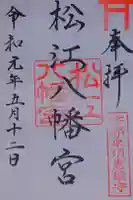 奉拝
松江八幡宮
令和元年五月十二日
松江
八幡宮